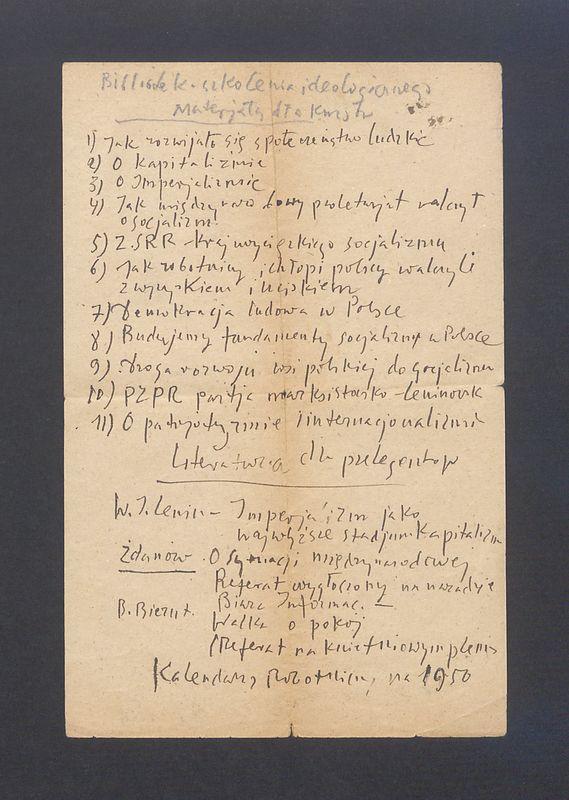 Bibliotek. szkolenia ideologicznego
Materjały dla Kursów
1) Jak rozwijało się społeczeństwo ludzkie
2) O Kapitalizmie
3) O Imperjalizmie
4) Jak międzynarodowy proletarjat walczył
o socjalizm
5) Z.SRR - kraj zwycięzkiego socjalizmu
6) Jak robotnicy i chłopi polscy walczyli
z wyzyskiem i uciskiem
7) Demokracja ludowa w Polsce
8) Budujemy fundamenty socjalizmu w Polsce
9) Droga rozwoju wsi polskiej do socjalizmu
10) PZPR partja marksistowsko-leninowsk
11) O patryotyzmie i internacjonalizmie
Literatura dla prelegentów
W. I. Lenin - Imperjalizm jako
najwyższe stadjum Kapitalizm
Żdanow. O sytuacji międzynarodowej
Referat wygłoszony na naradzie
Biura Informac. -
B. Bierut. Walka o pokój
(Referat na kwietniowym plenum
Kalendarz Robotniczy na 1950